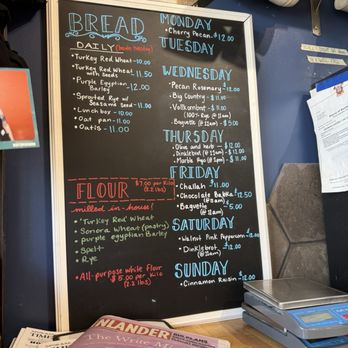 BREAD
DAILY
Turkey Red Wheat - 10.00
Turkey Red Wheat with Seeds - 11.50
Purple Egyptian Barley - 12.00
Sprouted Rye w/ Sesame seed - 11.00
Lunch box - 10.00
Oat pan - 11.00
Oatis - 11.00
FLOUR $7.00 per Kilo
(2.2 lbs)
milled in-house!
Turkey Red Wheat
Sonora Wheat (pastry)
purple egyptian Barley
Spelt
Rye
All-purpose white Flour
$5.00 per Kilo
(2.2 lbs)
MONDAY
Cherry Pecan $12.00
TUESDAY
WEDNESDAY
Pecan Rosemary - $12.00
Big Country - $11.00
Volkornbrot - $11.00
(100% Rye @ 11am)
Baguette - $5.00
THURSDAY
Olive and herb - $12.00
Dinklebrot - $12.00
Marble Rye - $11.00
FRIDAY
Challah $11.00
Chocolate Babka $12.50
(@ 11am)
Baguette $5.00
SATURDAY
Walnut Pink Peppercorn $12.00
Dinklebrot $12.00
(@ 11am)
SUNDAY
Cinnamon Raisin $12.00
NLANDER
TIME